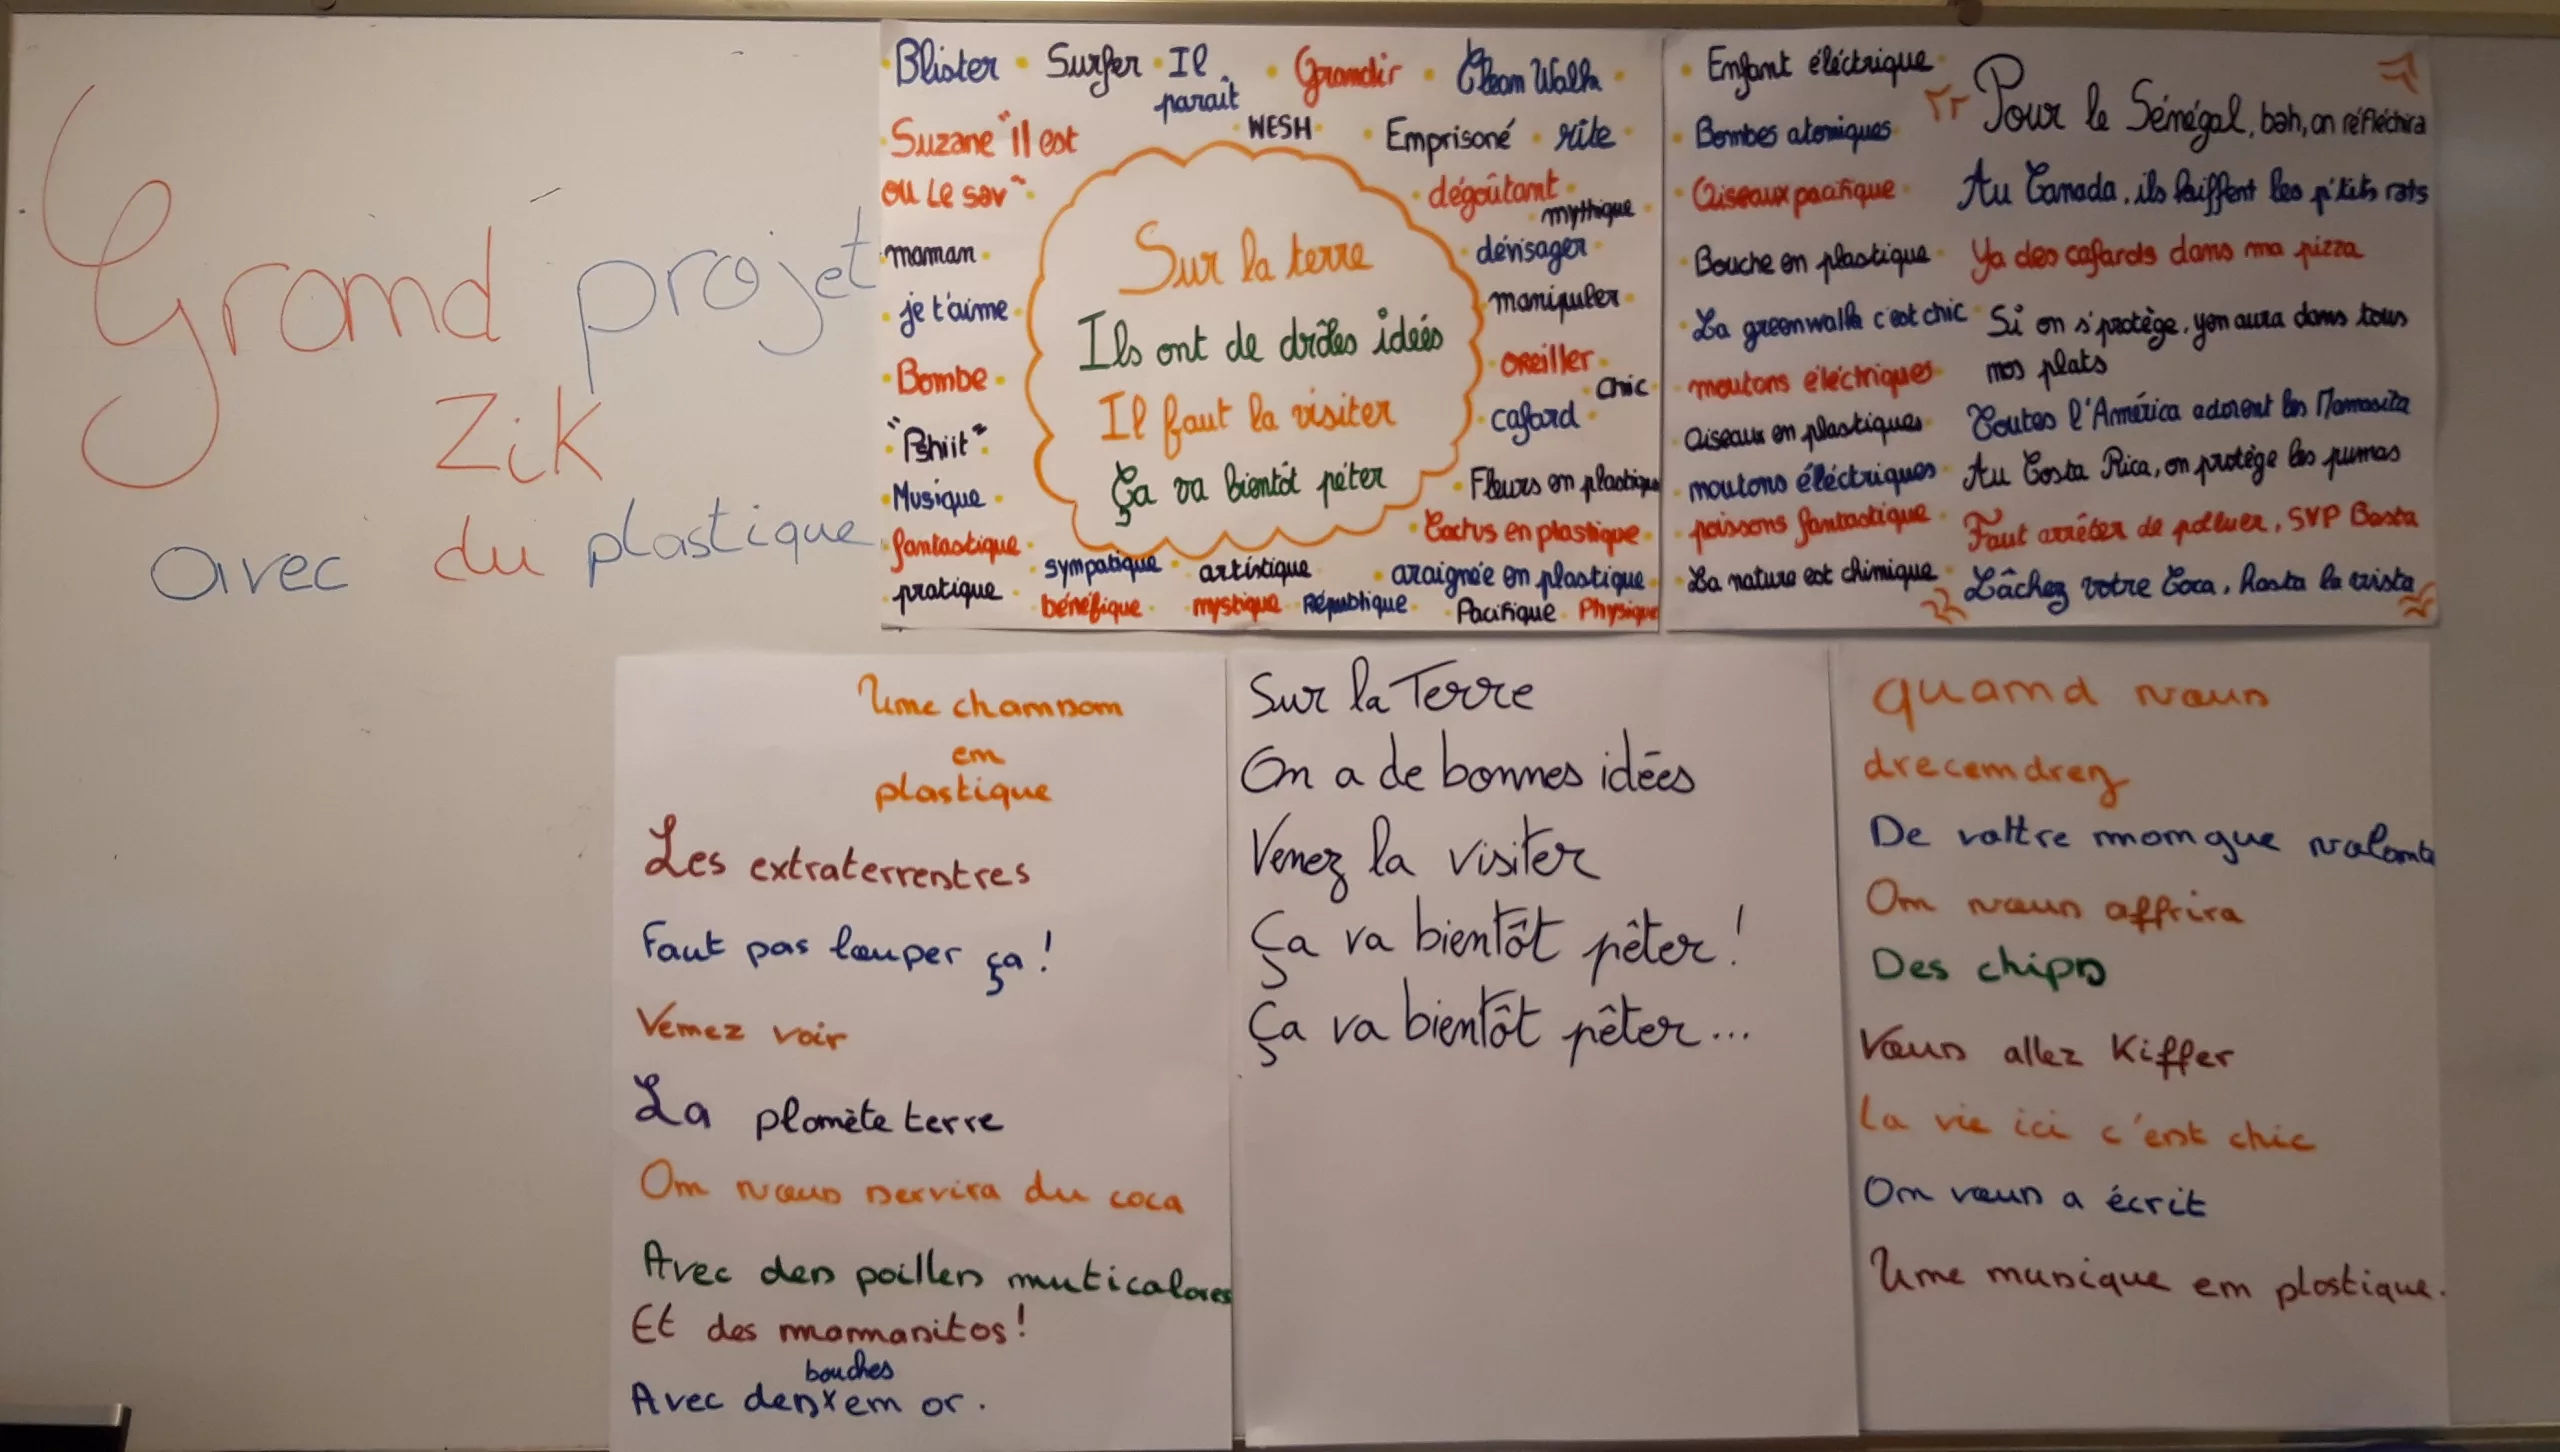 Grand projet
Zik
avec du plastique
Blister · Surfer · Il parait · Grandir · Clean Walk ·
· WESH · Emprisoné · rite ·
Suzane "il est
ou le sav" ·
dégoûtant ·
mythique ·
maman ·
dévisager ·
· je t'aime ·
manipuler ·
· Bombe ·
oreiller ·
chic ·
· "Pshiit" ·
cafard ·
· Musique ·
· Fleurs en plastique
· fantastique ·
· Cactus en plastique ·
pratique ·
sympatique · artistique · araignée en plastique ·
bénéfique · mystique · République · Pacifique · Physique
Sur la terre
Ils ont de drôles idéés
Il faut la visiter
Ça va bientôt péter
· Enfant éléctrique ·
· Bombes atomiques
· Oiseaux pacifique ·
· Bouche en plastique ·
· La greenwalk c'est chic ·
· moutons éléctriques ·
Oiseaux en plastiques ·
· moutons éléctriques ·
· poissons fantastique ·
· La nature est chimique ·
Pour le Sénégal, bah, on réfléchira
Au Canada, ils kiffent les p'tits rats
Ya des cafards dans ma pizza
Si on s'protège, yen aura dans tous
nos plats
Toutes l'América adorent les Mamasita
Au Costa Rica, on protège les pumas
Faut arrêter de polluer, SVP Basta
Lâchez votre Coca, hasta la vista
Une chanson
en
plastique
Les extraterrestres
Faut pas louper ça !
Venez voir
La planète terre
On vous servira du coca
Avec des pailles muticolores
Et des momasitos !
bouches
Avec des x em or.
Sur la Terre
On a de bonnes idées
Venez la visiter
Ça va bientôt pêter !
Ça va bientôt pêter...
quand vous
drecendrez
De vottre mongue volante
On vous offrira
Des chips
Vous allez Kiffer
La vie ici c'est chic
On vous a écrit
Une musique en plastique.